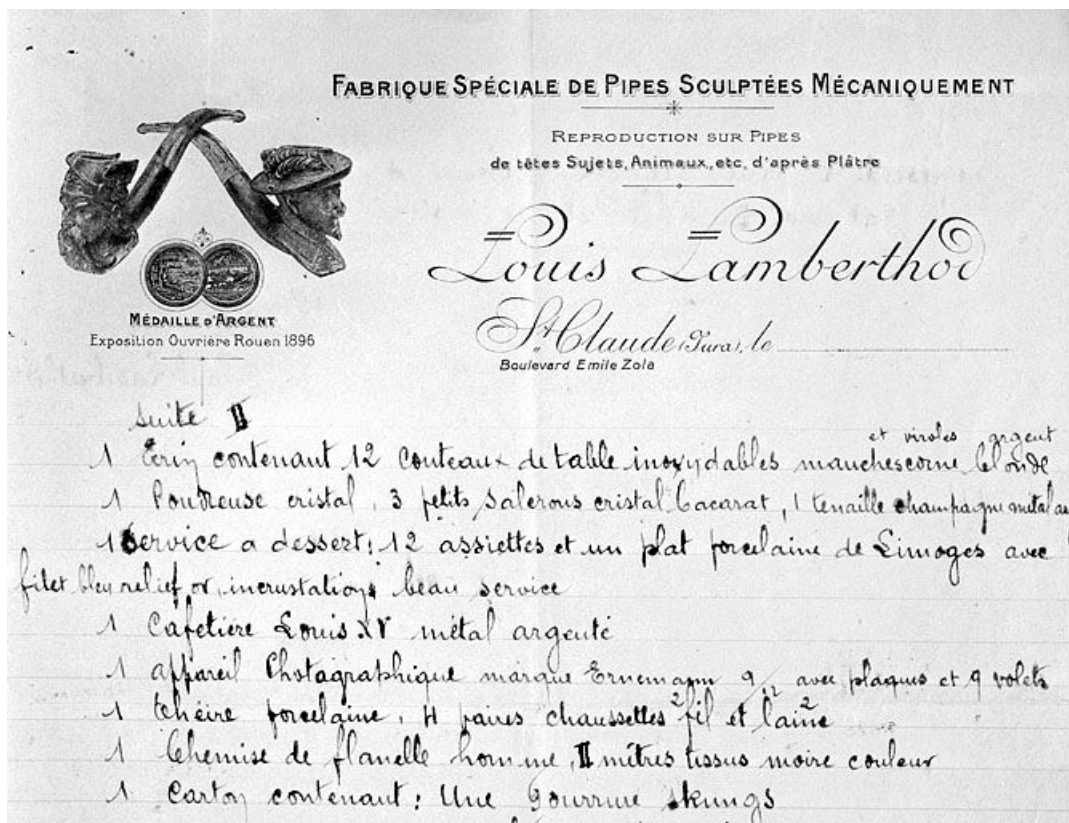 FABRIQUE SPÉCIALE DE PIPES SCULPTÉES MÉCANIQUEMENT
REPRODUCTION SUR PIPES
de têtes Sujets, Animaux, etc, d'après Plâtre
Louis Lamberthod
St Claude (Jura), le
Boulevard Emile Zola
MÉDAILLE D'ARGENT
Exposition Ouvrière Rouen 1896
suite II
et viroles argent
1 Ecrin contenant 12 couteaux de table inoxydables manches corne blonde
1 Poudreuse cristal, 3 petits salerons cristal bacarat, 1 tenaille champagne métal
1 Service a dessert: 12 assiettes et un plat porcelaine de Limoges avec
filet bleu relief or, incrustations beau service
1 Cafetiere Louis XV métal argenté
1 appareil Photagraphique marque Ernemann 9/12 avec plaques et 9 volets
1 théire porcelaine, 4 paires chaussettes 2 fil et 2 laine
1 Chemise de flanelle homme, II mètres tissus moire couleur
1 Carton contenant: Une gourrure skungs